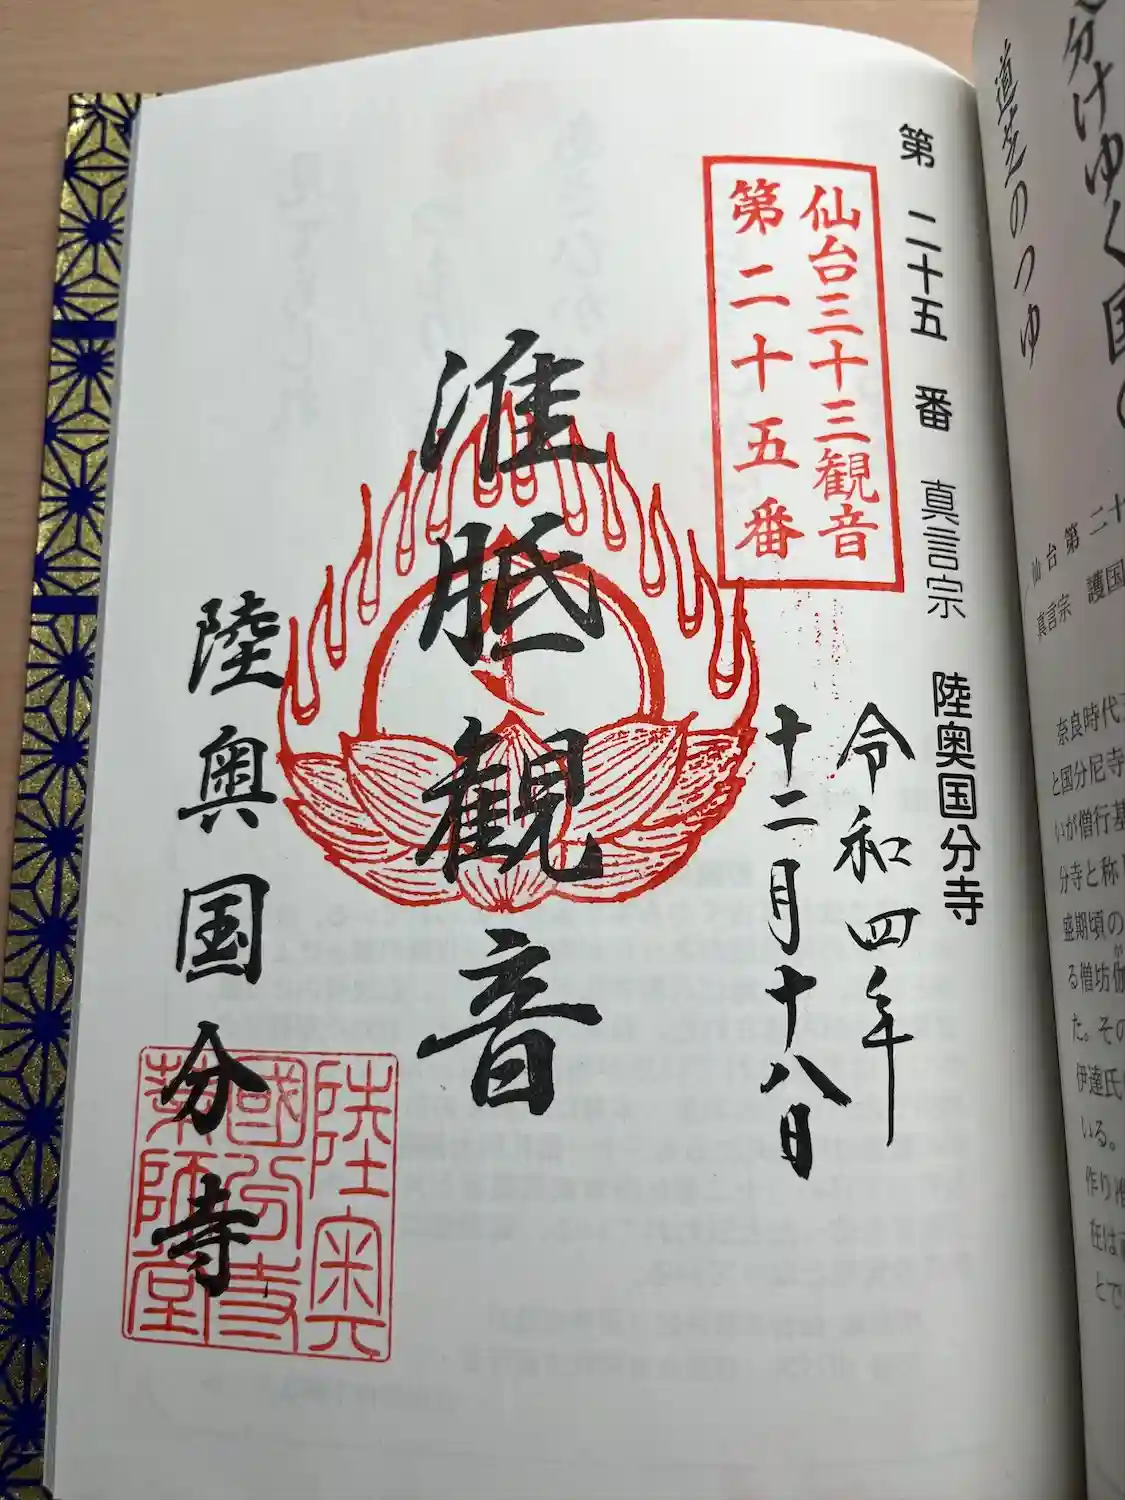 道芝のつゆ
分けゆく国の
仙台第二十
真言宗 護国
奈良時代
と国分尼寺
いが僧行基
分寺と称し
盛期頃の
る僧坊伽
た。その
伊達氏
いる。
作り准
在は
とで
第二十五番 真言宗 陸奥国分寺
仙台三十三観音
第二十五番
令和四年
十二月十八日
准胝観音
陸奥国分寺
陸奥
國分寺
薬師堂